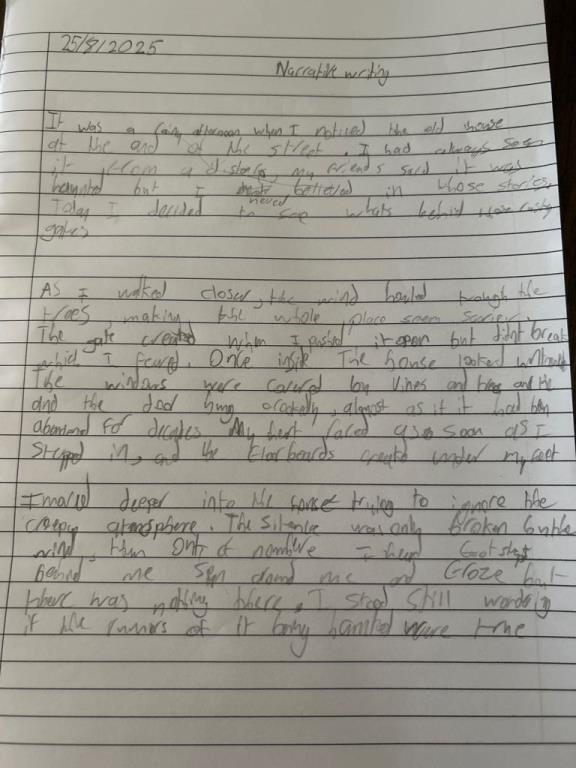 25/8/2025
Narrative writing
It was a rainy afternoon when I noticed the old house
at the end of the street. I had always seen
it from a distance, my friends said it was
haunted but I never believed in those stories,
Today I decided to see whats behind those rusty
gates
As I walked closer, the wind howled trough the
trees, making the whole place seem scarier.
The gate creaked when I pushed it open but didnt break
which I feared. Once inside The house looked
The windows were covered by vines and and the
and the door hung crookedly, almost as if it had been
abandoned for decades My heart raced as soon as I
stepped in, and the floorboards creaked under my feet
I moved deeper into the house trying to ignore the
creepy atmosphere. The silence was only broken by the
wind, then out of nowhere I heard footsteps
behind me and froze but
there was nothing there, I stood still wondering
if the rumors of it being haunted were true